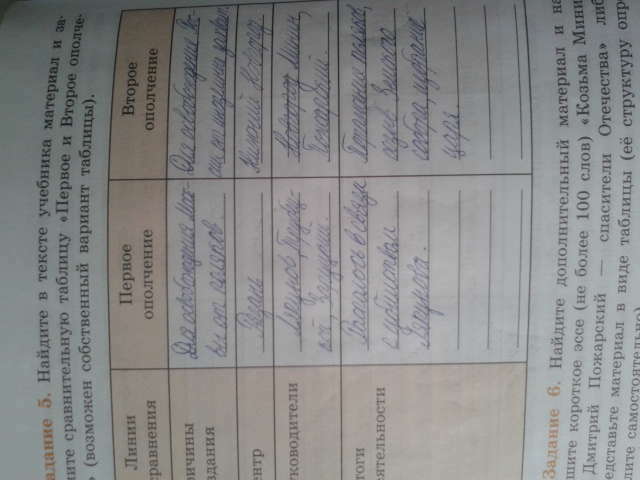 адание 5. Найдите в тексте учебника материал и за-
ните сравнительную таблицу «Первое и Второе ополче-
» (возможен собственный вариант таблицы).
Линии
сравнения
Первое
ополчение
Второе
ополчение
ричины
здания
Для освобождения Моск-
вы от поляков
Для освобождения Рос-
сии от иноземных захват.
ентр
Рязань
Нижний Новгород
уководители
Ляпунов, Трубец-
кой, Заруцкий.
Новгород Минин,
Пожарский.
тоги
еятельности
Распалось в связи
с убийством
Ляпунова.
поляков,
созыв Земского
собора, избрание
царя.
Задание 6. Найдите дополнительный материал и на
шите короткое эссе (не более 100 слов) «Козьма Мини
Дмитрий Пожарский — спасители Отечества» либ
едставьте материал в виде таблицы (её структуру опр
лите самостоятельно).